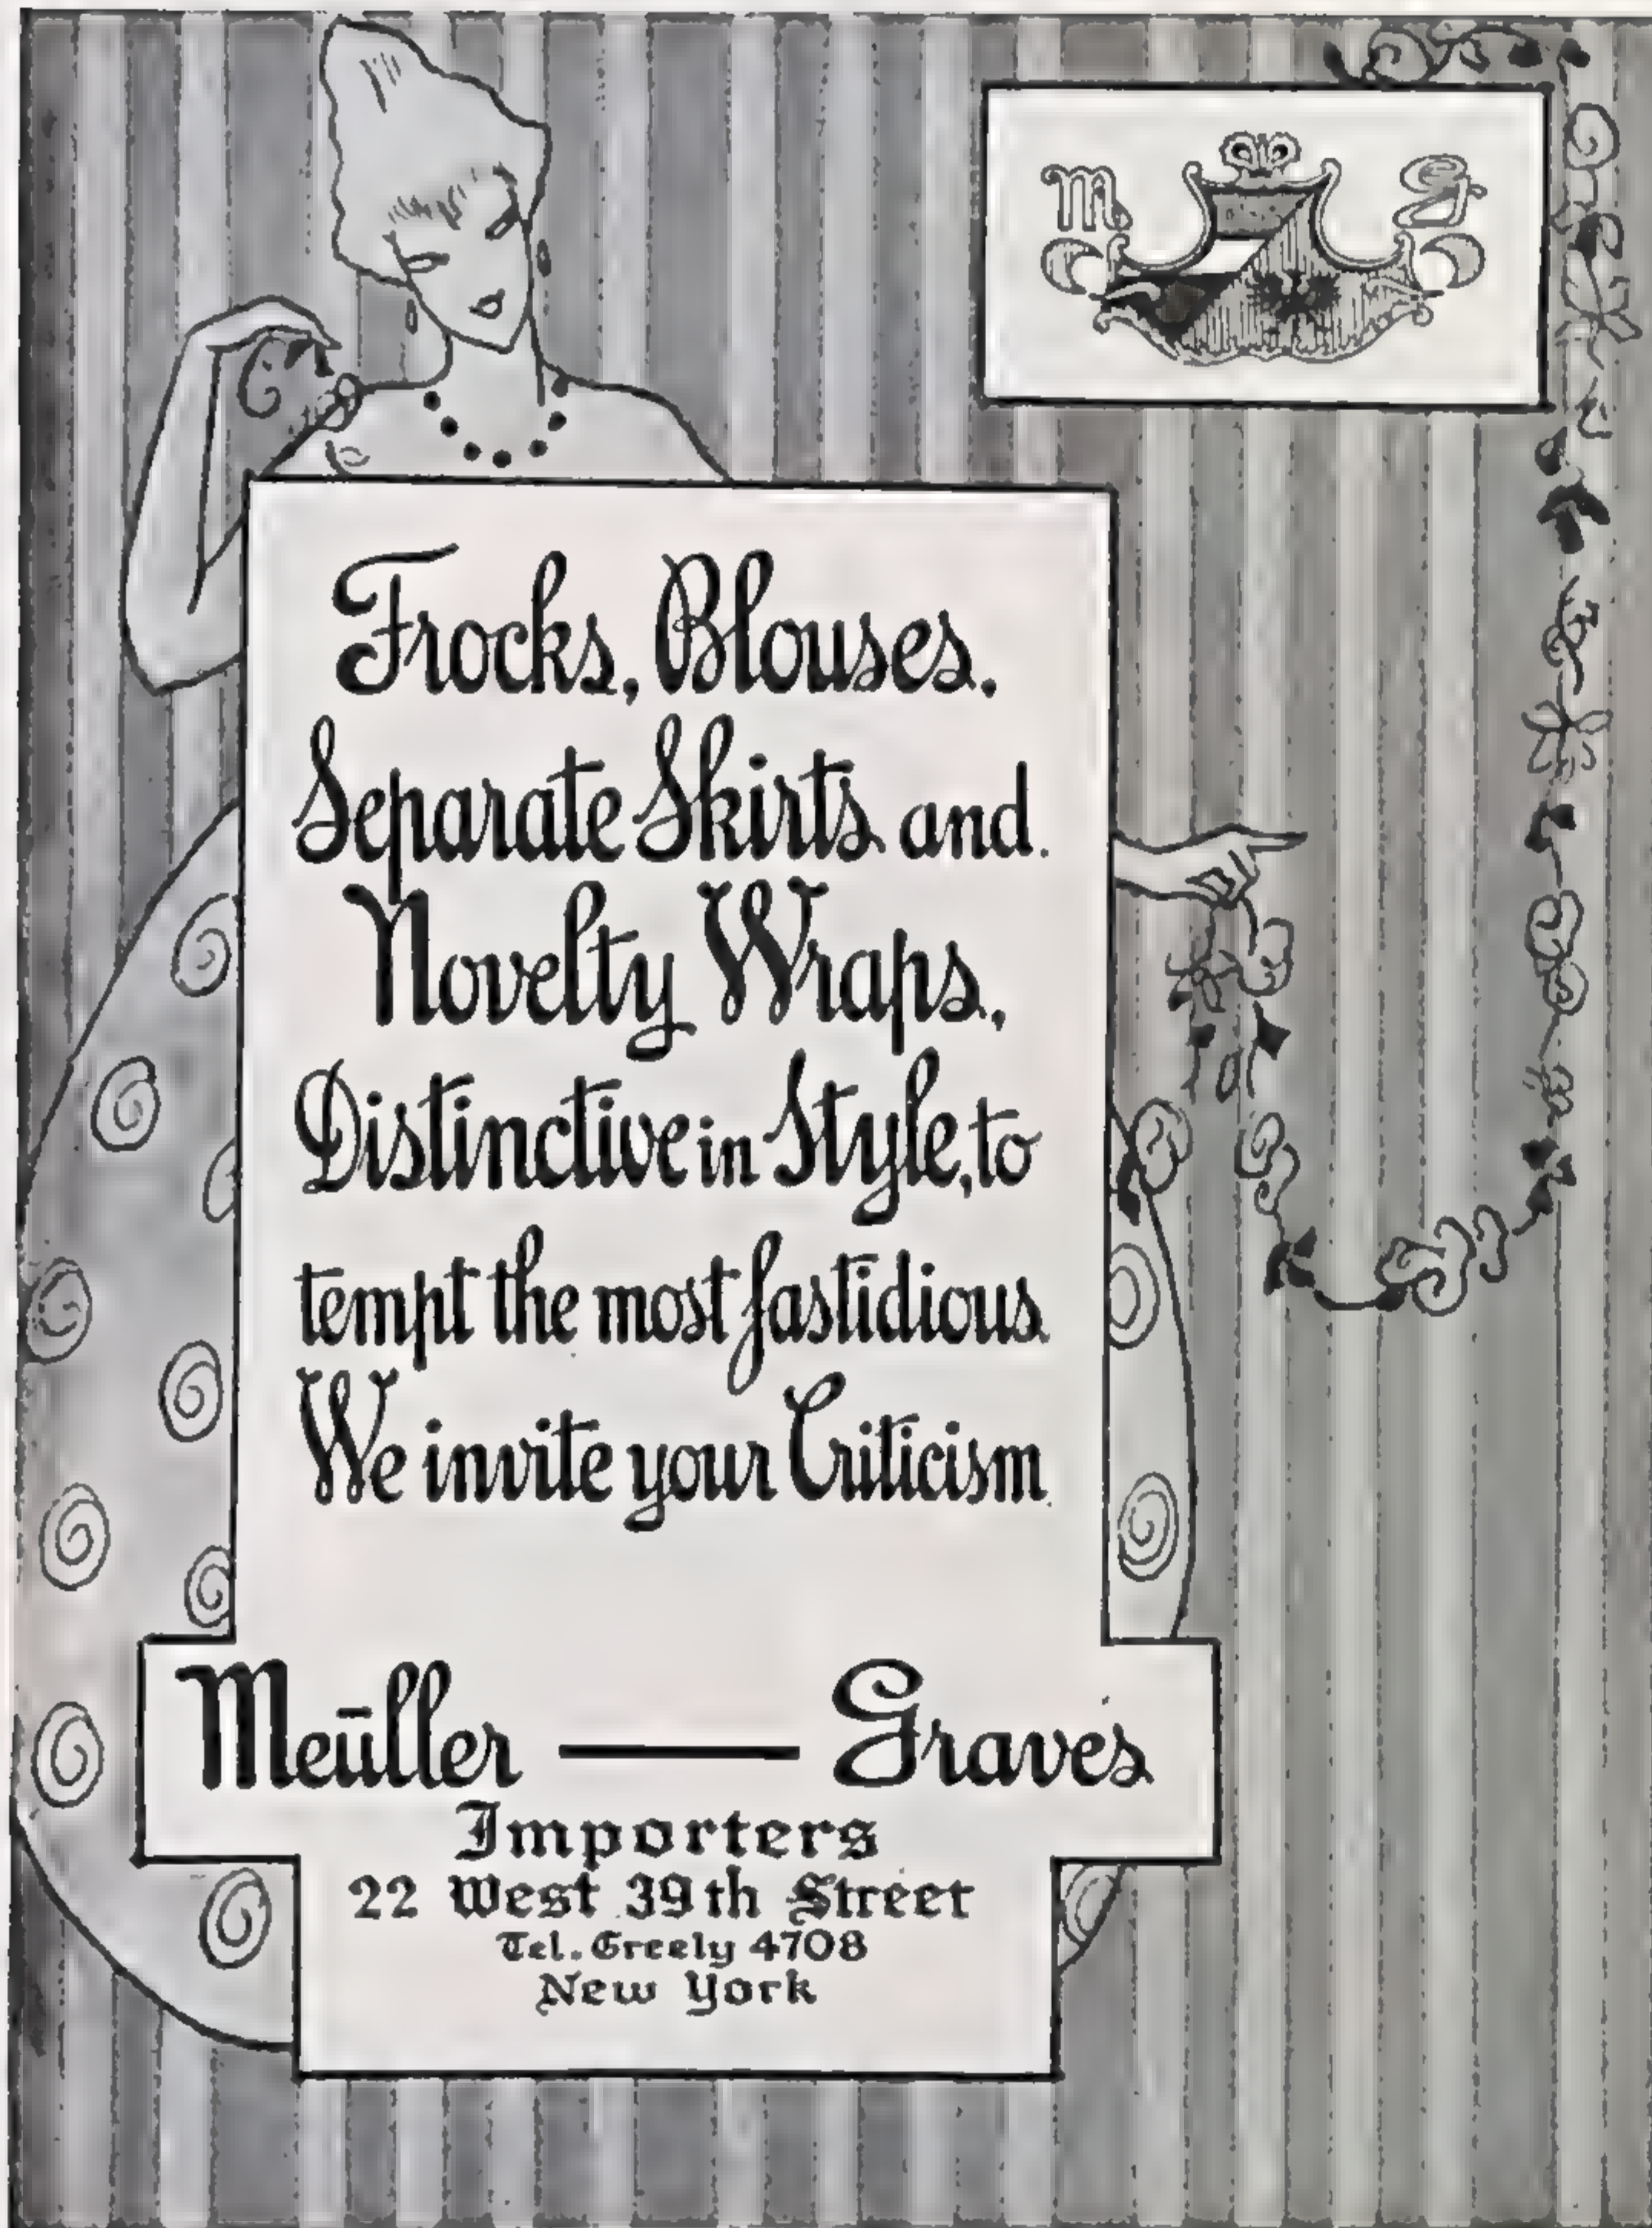 M. G
Frocks, Blouses,
Separate Skirts and
Novelty Wraps,
Distinctive in Style, to
tempt the most fastidious
We invite your Criticism
Meūller — Graves
Importers
22 West 39th Street
Tel. Greely 4708
New York